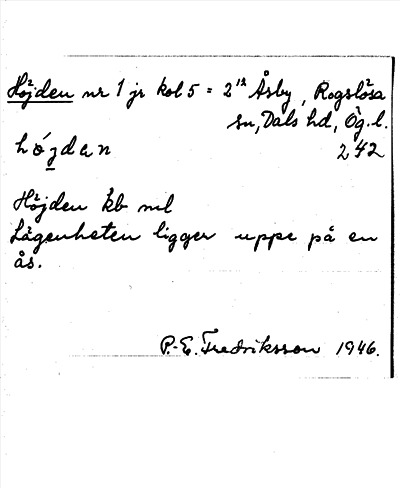 Höjden nr 1 jr kol 5 = 2¹² Åsby, Rogslösa
sn, Dals hd, Ög. l.
hǿjdan 242
Höjden kb ml
Lägenheten ligger uppe på en
ås.
P.-E. Fredriksson 1946.